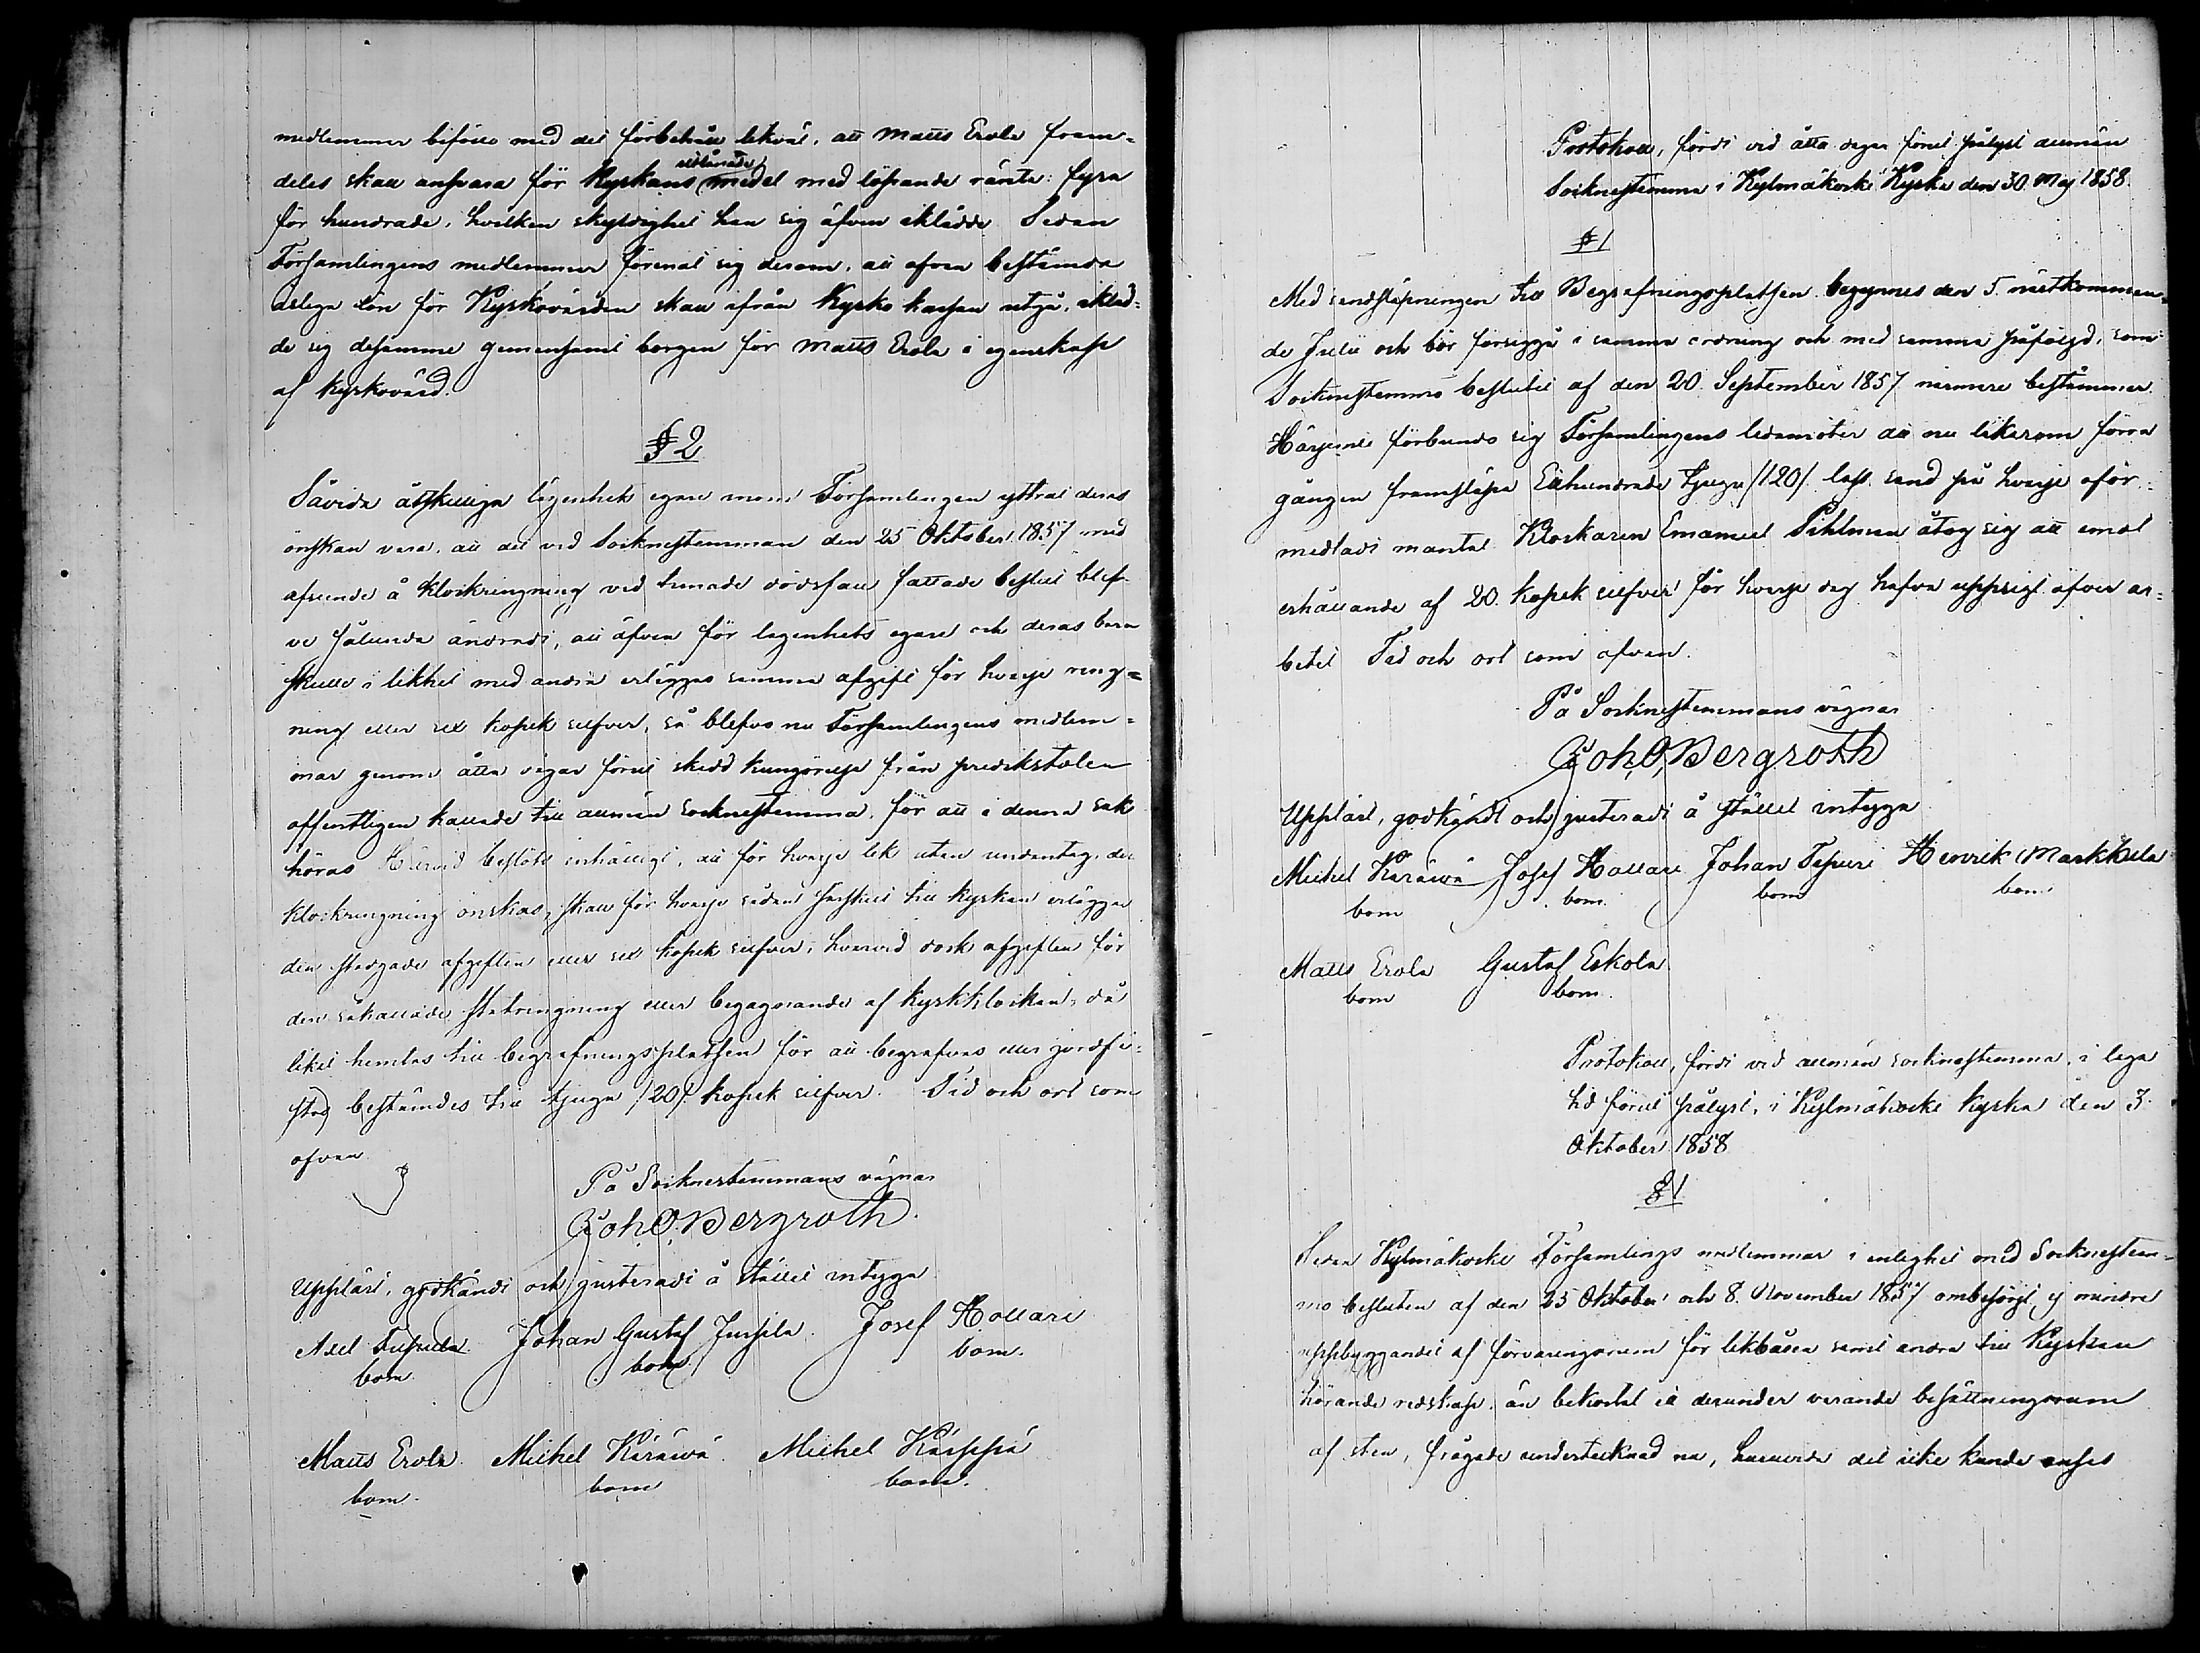 medlemmar biföllo med det förbehåll likväl, att Matts Erola fram-
deles skall ansvara för Kyrkans utlånade medel med löpande ränta: fyra
för hundrade, hvilken skyldighet han sig äfven iklädde. Sedan
Församlingens medlemmar förenat sig derom, att ofvan bestämda
årliga lön för Kyrkovärden skall ifrån Kyrko kassan utgå, iklad-
de sig desamme gemensamt borgen för Matts Erola i egenskap
af Kyrkovärd.
§ 2
Såvida åtskilliga lägenhets egare inom Församlingen yttrat deras
önskan vara, att det vid Socknestemman den 25 Oktober 1857 med
afseende å klockringning vid timade dödsfall fattade beslut blef-
ve sålunda ändradt, att äfven för lägenhets egare och deras barn
skulle i likhet med andra erläggas samma afgift för hvarje ring-
ning eller sex kopek silfver, så blefvo nu Församlingens medlem-
mar genom åtta dagar förut skedd kungörelse från predikstolen
offentligen kallade till allmän socknestemma, för att i denna sak
höras. Härvid beslöts enhälligt, att för hvarje lik utan undantag, der
klockringning önskas, skall för hvarje sådan särskilt till kyrkan erläggas
den stadgade afgiften eller sex kopek silfver, hvarvid dock afgiften för
den såkallade ringning eller begagnande af kyrkklockan, då
liket hemtas till begrafningsplatsen för att begrafvas eller jordfä-
stas bestämdes till tjugu /20/ kopek silfver. Tid och ort som
ofvan.
På Socknestemmans vägnar
Joh. O. Bergroth.
Uppläst, godkändt och justeradt å stället intyga
Axel Johan Gustaf Jussila. Josef Hollari
bom. bom. bom.
Matts Erola. Michel Käräwä. Michel Käppä
bom. bom bom.
Protokoll, fördt vid åtta dagar förut pålyst allmän
Socknestemma i Kylmäkoski Kyrka den 30 Maj 1858.
§ 1
Med sandsläpningen till Begrafningsplatsen begynnes den 5. nästkomman-
de Julii och bör försiggå i samma ordning och med samma påföljd, som
Socknestemmo beslutet af den 20. September 1857 närmare bestämmer.
Härjemte förbundo sig Församlingens ledamöter att nu likasom förra
gången framsläpa Etthundrade tjugu /120/ lass sand på hvarje oför-
medladt mantal. Klockaren Emanuel Pihlman åtog sig att emot
erhållande af 20. kopek silfver för hvarje dag hafva uppsigt öfver ar-
betet. Tid och ort som ofvan.
På Socknestemmans vägnar
Joh. O. Bergroth
Uppläst, godkändt och justeradt å stället intyga
Michel Käräwä Josef Hollari Johan Henrik Markkula
bom bom. bom bom.
Matts Erola Gustaf Eskola
bom bom.
Protokoll, fördt vid allmän socknestemma, i laga
tid förut pålyst, i Kylmäkoski kyrka den 3
Oktober 1858
§ 1
Sedan Kylmäkoski Församlings medlemmar i enlighet med Socknestem-
mo besluten af den 25 Oktober och 8. November 1857 ombesörjt ej mindre
uppbyggandet af förvaringsrum för likbåren samt andra till Kyrkan
hörande redskap, än bekostat ett derunder varande besättningsrum
af sten, frågade undertecknad nu, huruvida det icke kunde anses